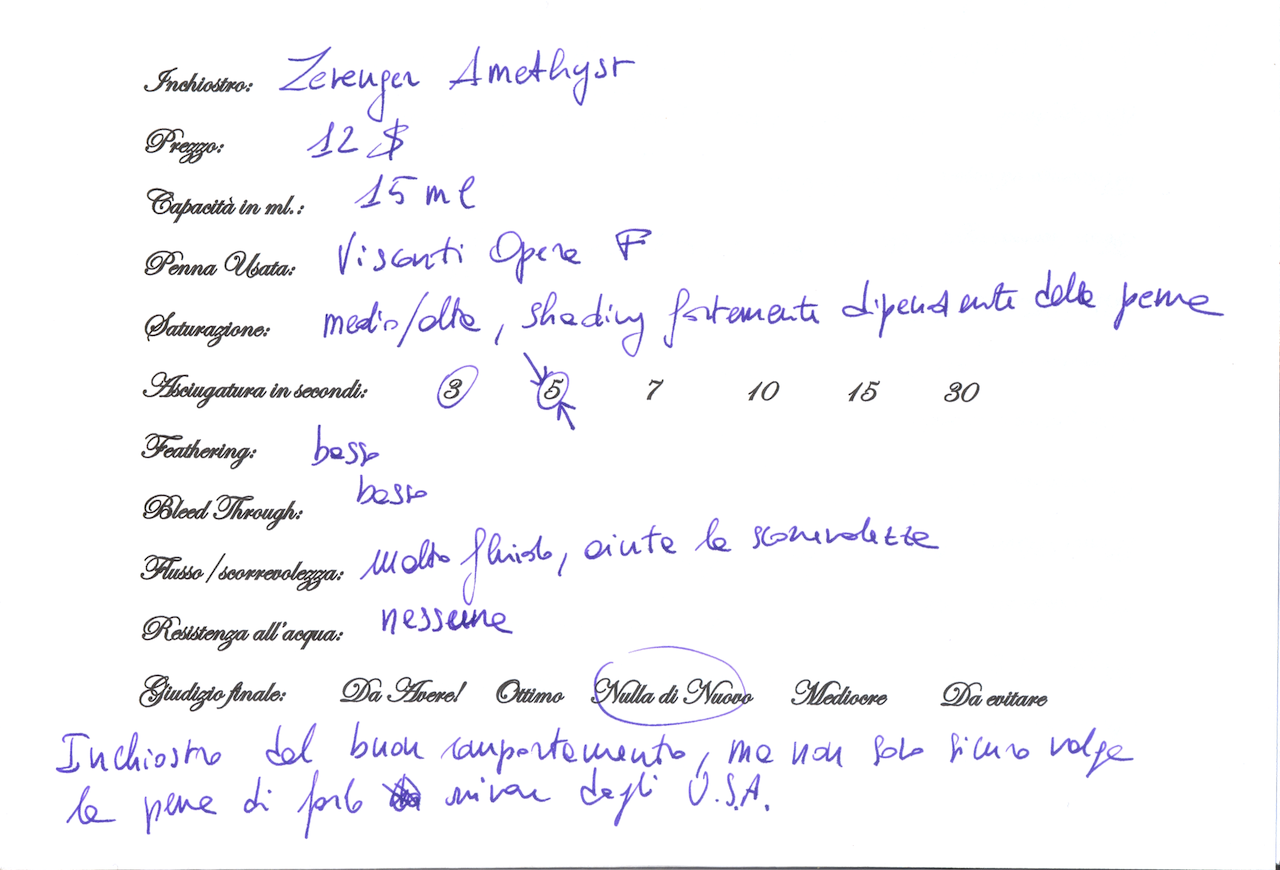 Inchiostro: Zerenger Amethyst
Prezzo: 12 $
Capacità in ml.: 15 ml
Penna Usata: Visconti Opera F
Saturazione: medio/alta, shading fortemente dipendente dalla penna
Asciugatura in secondi: 3 5 7 10 15 30
Feathering: basso
Bleed Through: basso
Flusso/scorrevolezza: molto fluido, aiuta la scorrevolezza
Resistenza all'acqua: nessuna
Giudizio finale: Da Avere! Ottimo Nulla di Nuovo Mediocre Da evitare
Inchiostro dal buon comportamento, ma non sono sicuro valga
la pena di farlo arrivare dagli U.S.A.